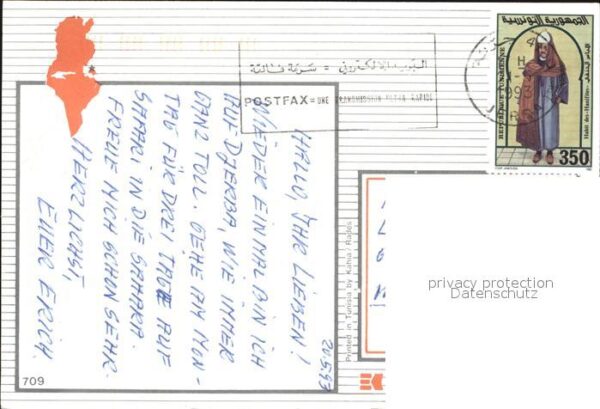 HALLO, IHR LIEBEN!
WIEDER EINMAL BIN ICH
AUF DJERBA, WIE IMMER
GANZ TOLL. GEHE AM MON-
TAG FÜR DREI TAGE AUF
SAFARI IN DIE SAHARA.
FREUE MICH SCHON SEHR.
HERZLICHST,
EUER ERICH.
20.5.93
709
Printed in Tunisia by Kahia / Rades
البريد الإلكتروني = سرعة فائقة
POSTFAX = UNE TRANSMISSION ULTRA RAPIDE
الجمهورية التونسية
REPUBLIQUE TUNISIENNE
350
privacy protection
Datenschutz